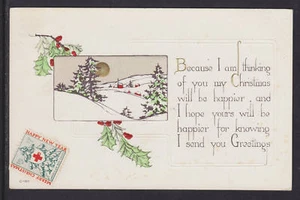 Because I am thinking
of you my Christmas
will be happier and
I hope yours will be
happier for knowing
I send you Greetings
HAPPY NEW YEAR
MERRY CHRISTMAS